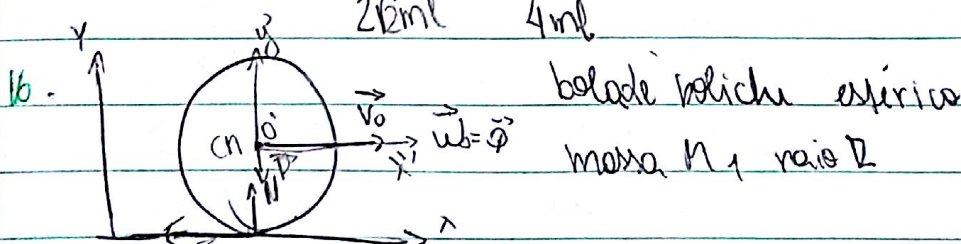 2√2ml 4ml
16.
Y
y'
CM
O'
V₀
x'
ω₀=φ
P
N
x
bola de boliche esférica
massa M, raio R